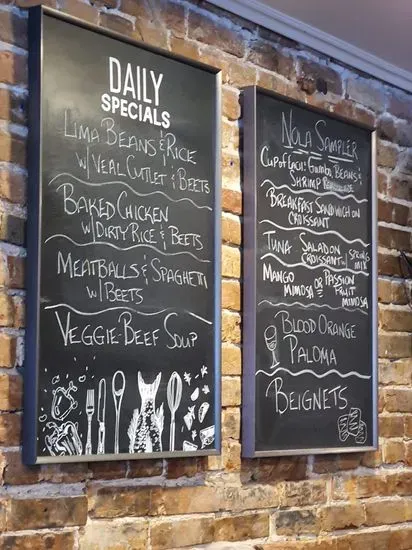 DAILY
SPECIALS
LIMA BEANS & RICE
W/ VEAL CUTLET & BEETS
BAKED CHICKEN
W/ DIRTY RICE & BEETS
MEATBALLS & SPAGHETTI
W/ BEETS
VEGGIE-BEEF SOUP
NOLA SAMPLER
CUP OF EACH: GUMBO, BEANS &
SHRIMP REMOULADE
BREAKFAST SANDWICH ON
CROISSANT
TUNA SALAD ON
CROISSANT W/ SPRING MIX
MANGO MIMOSA OR PASSION FRUIT MIMOSA
BLOOD ORANGE
PALOMA
BEIGNETS